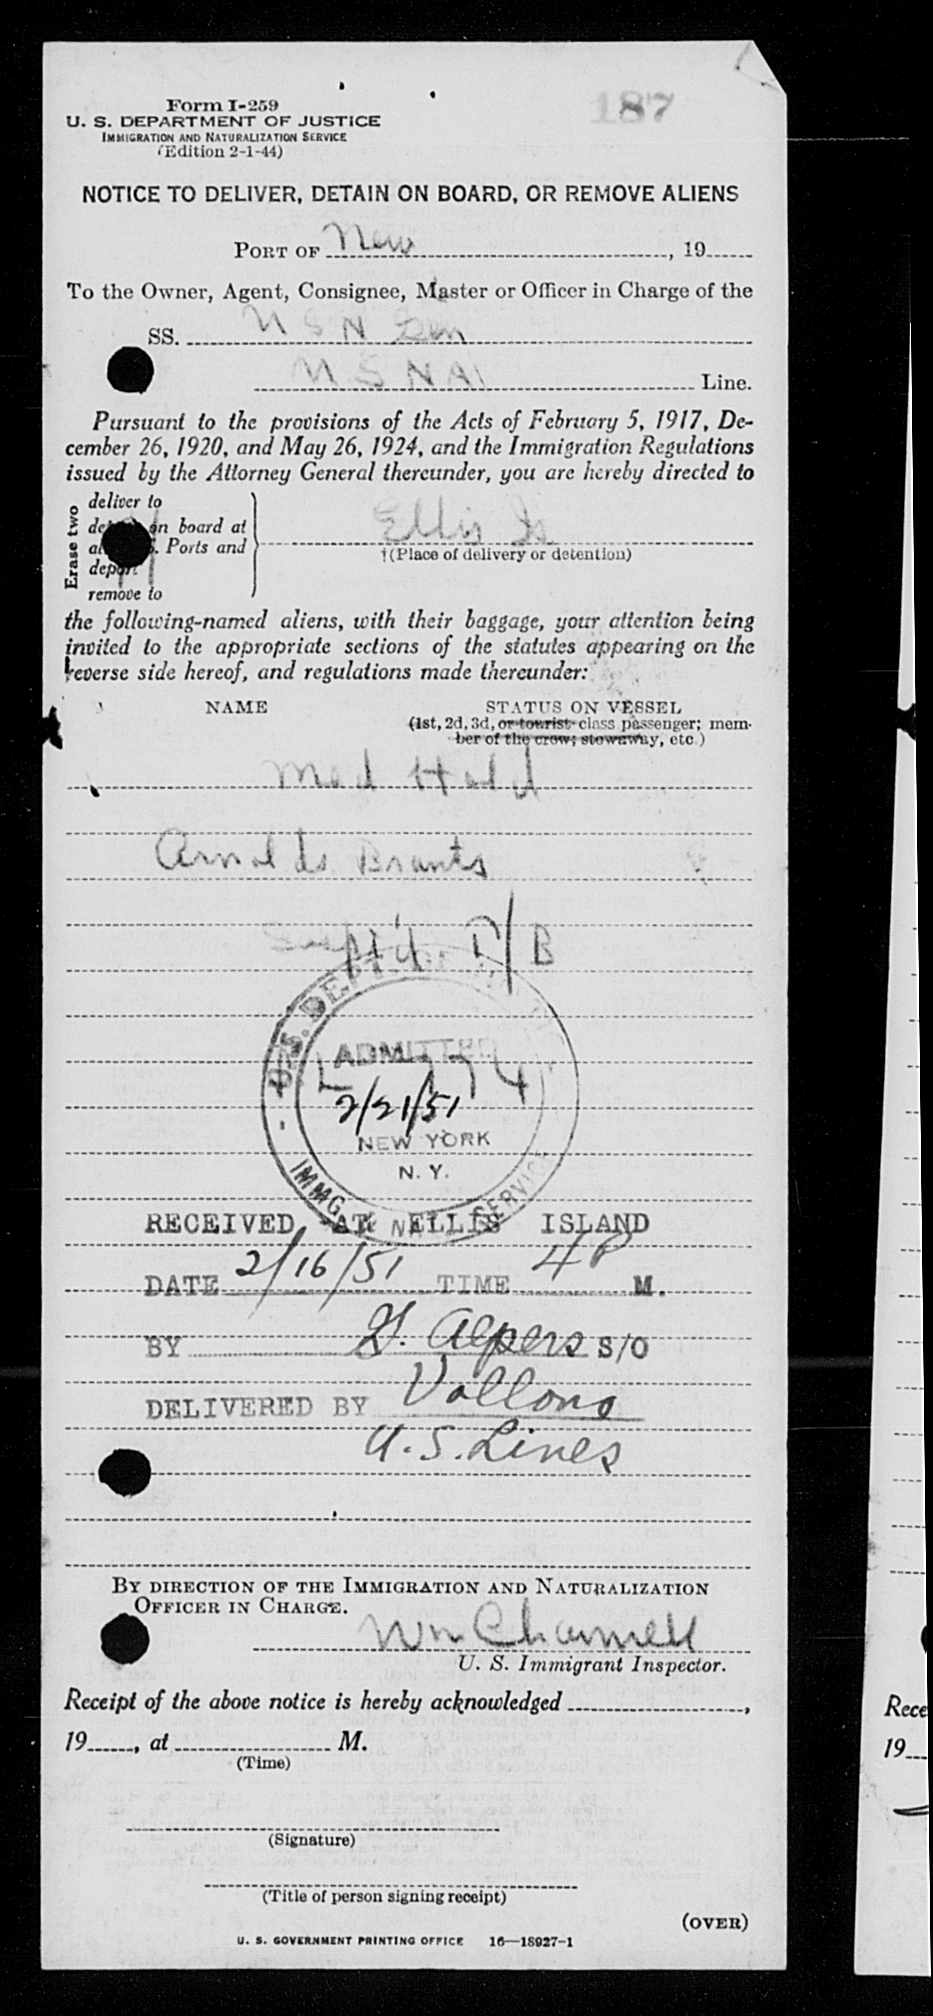 187
Form I-259
U. S. DEPARTMENT OF JUSTICE
IMMIGRATION AND NATURALIZATION SERVICE
(Edition 2-1-44)
NOTICE TO DELIVER, DETAIN ON BOARD, OR REMOVE ALIENS
PORT OF New, 19
To the Owner, Agent, Consignee, Master or Officer in Charge of the
SS. U S N Gen
U S NA Line.
Pursuant to the provisions of the Acts of February 5, 1917, De-
cember 26, 1920, and May 26, 1924, and the Immigration Regulations
issued by the Attorney General thereunder, you are hereby directed to
Erase two
deliver to
on board at
Ports and
deport
remove to
Ellis Is
†(Place of delivery or detention)
the following-named aliens, with their baggage, your attention being
invited to the appropriate sections of the statutes appearing on the
reverse side hereof, and regulations made thereunder:
NAME STATUS ON VESSEL
(1st, 2d, 3d, or tourist-class passenger; mem-
ber of the crew; stowaway, etc.)
Med Held
Arnolds Brants
P/B
U.S. DEPT. OF
ADMITTED
2/21/51
NEW YORK
N. Y.
IMMG. & NAT. SERVICE
RECEIVED AT ELLIS ISLAND
DATE 2/16/51 TIME 4 P M.
BY G. Alpers S/O
DELIVERED BY Vollono
U.S. Lines
BY DIRECTION OF THE IMMIGRATION AND NATURALIZATION
OFFICER IN CHARGE.
Wm Chamell
U. S. Immigrant Inspector.
Receipt of the above notice is hereby acknowledged ,
19, at M.
(Time)
(Signature)
(Title of person signing receipt)
(OVER)
U. S. GOVERNMENT PRINTING OFFICE 16—18927-1
Rece
19